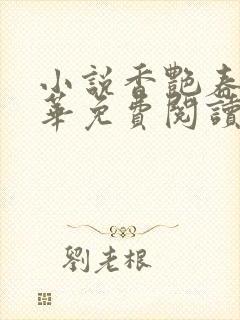 小說香艷春
華免費閱讀
劉老根